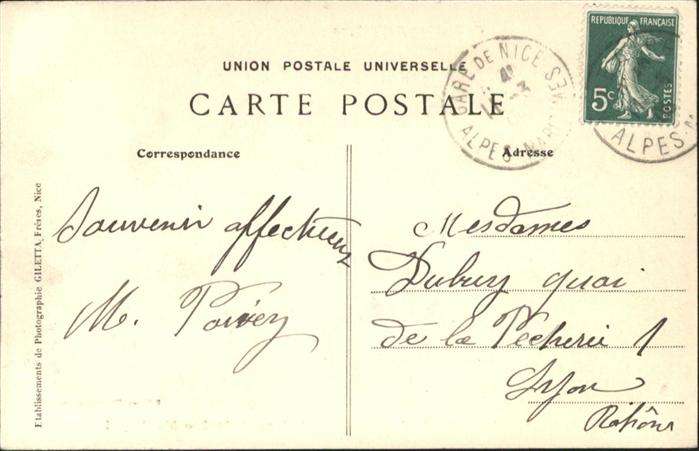 UNION POSTALE UNIVERSELLE
CARTE POSTALE
GARE DE NICE
ALPES
REPUBLIQUE FRANÇAISE
5c
POSTES
ALPES-M
Correspondance
Adresse
Souvenir affectueux
M.
Mesdames
quai
de la Pêcherie 1
Lyon
Etablissements de Photographie GILETTA, Frères, Nice